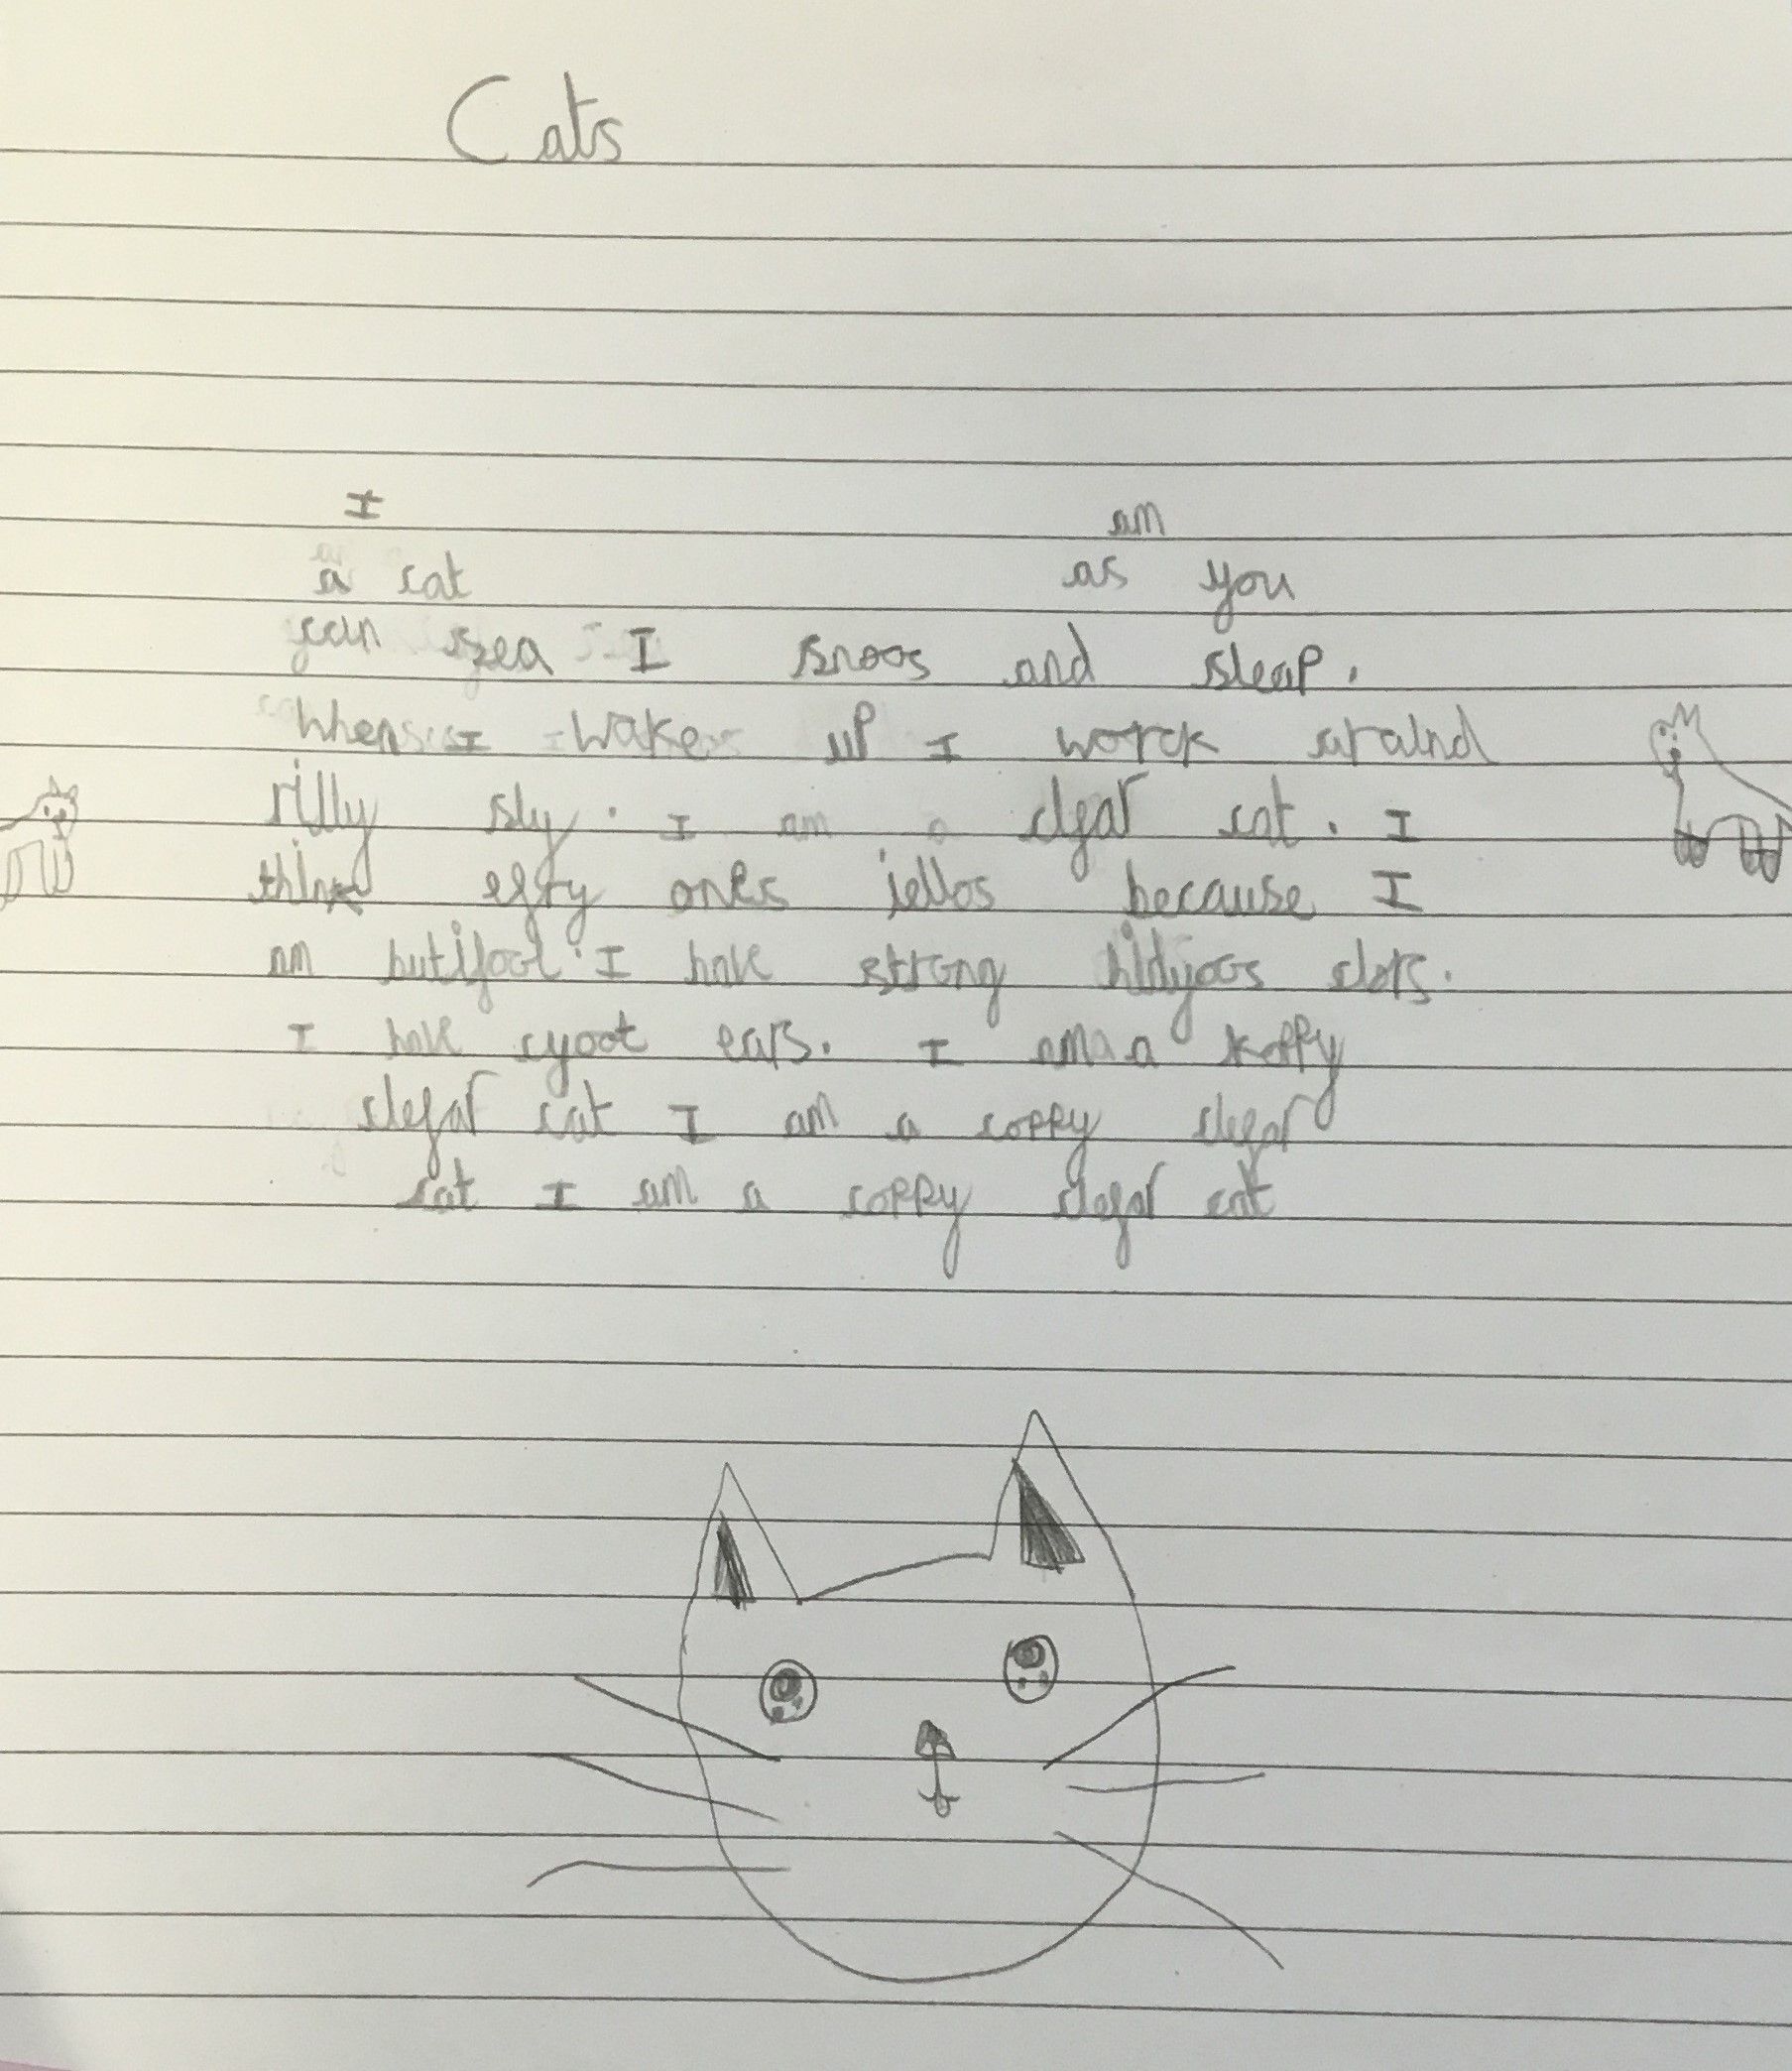 Cats
I am
a cat as you
can sea I snoos and sleap.
When I wake up I worck aralnd
rilly sly. I am a clefar cat. I
think efry ones jellos because I
am butifool. I have strong hidyoos clors.
I have cyoot ears. I am a koppy
clefar cat I am a coppy clefar
cat I am a coppy clefar cat